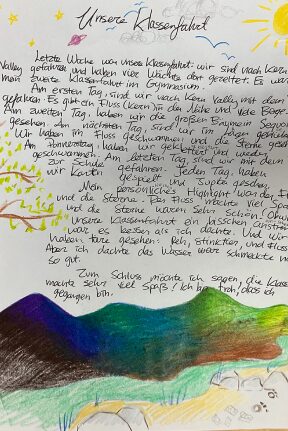 Unsere Klassenfahrt
Letzte Woche war unsere Klassenfahrt. wir sind nach Kern
Valley gefahren und haben vier Nächte dort gezeltet. Es war
mein zweite Klassenfahrt im Gymnasium.
Am ersten Tag, sind wir nach Kern Valley mit dem
gefahren. Es gibt ein Fluss (Kern) in der Nähe und viele Berge.
Am zweiten Tag, haben wir die großen Bäume
gesehen. Am nächsten Tag, sind wir im
Wir haben im Fluss geschwommen und die Sterne
Am Donnerstag, haben wir geklettert und wieder
geschwommen. Am letzten Tag, sind wir mit dem
zur Schule gefahren. Jeden Tag, haben
wir Karten gespielt und
Mein persönliches Highlight war der Fluss
und die Sterne. Der Fluss machte viel Spaß
und die Sterne waren sehr schön!
unsere Klassenfahrt ein bisschen
war es besser als ich dachte. Und wir
haben Tiere gesehen: Reh, Stinktier, und
Aber ich dachte das Wasser
so gut.
Zum Schluss möchte ich sagen, die
machte sehr viel Spaß! Ich bin froh, dass ich
gegangen bin.